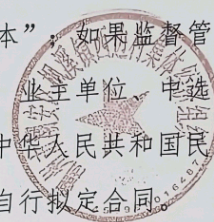 本”，如果监督管
业主单位、中选
中华人民共和国民
自行拟定合同。